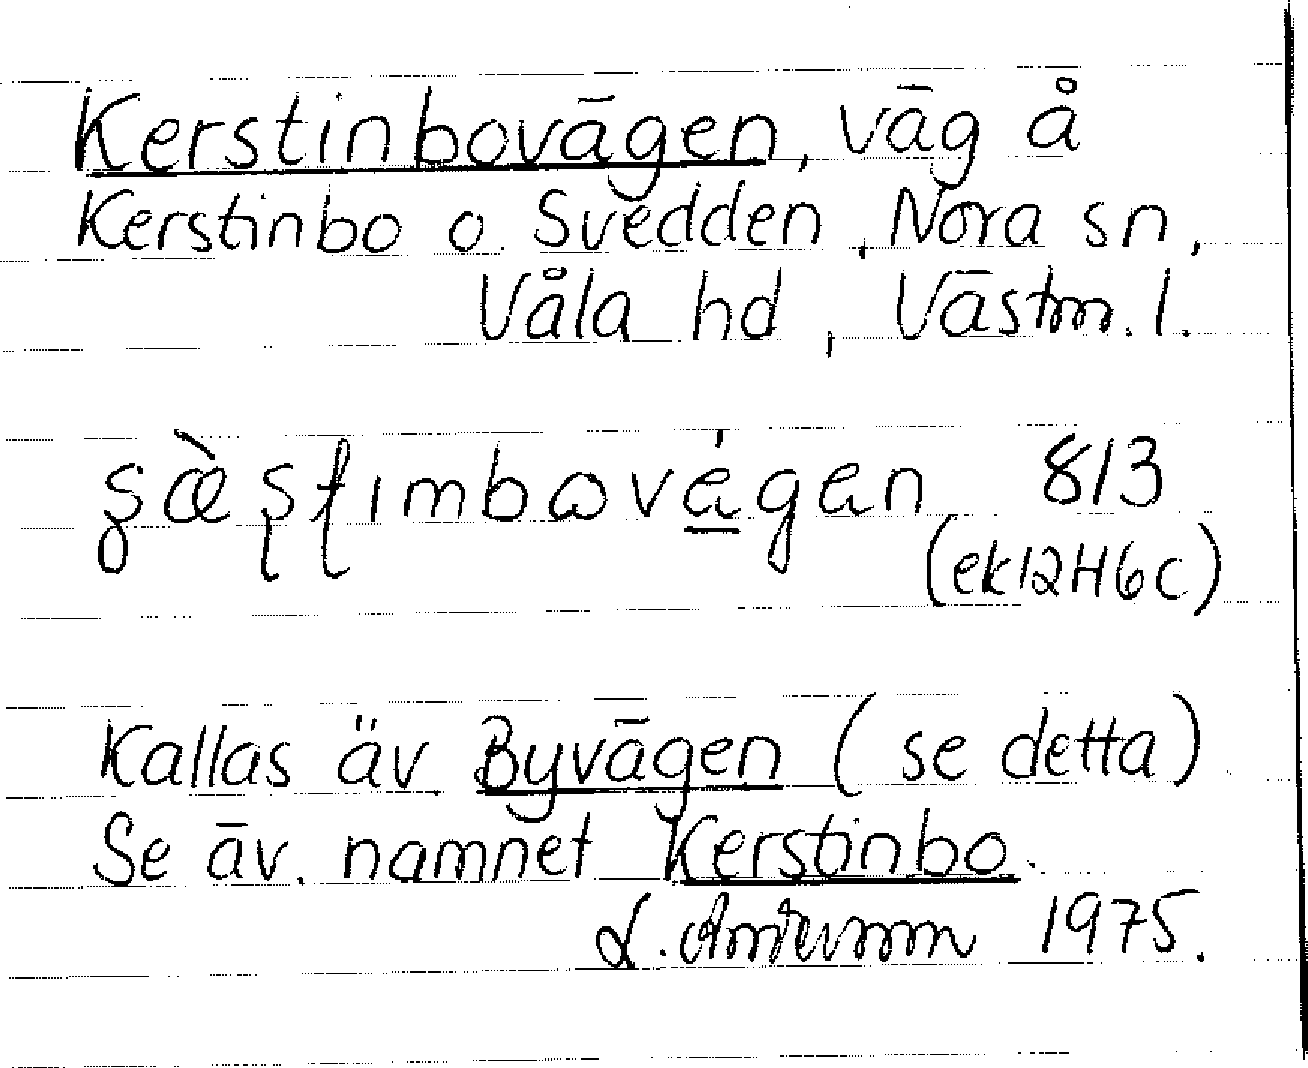 Kerstinbovägen, väg å
Kerstinbo o. Svedden, Nora sn,
Våla hd, Västm. l.
813
(ek 12H6c)
Kallas äv Byvägen (se detta)
Se äv. namnet Kerstinbo.
1975.